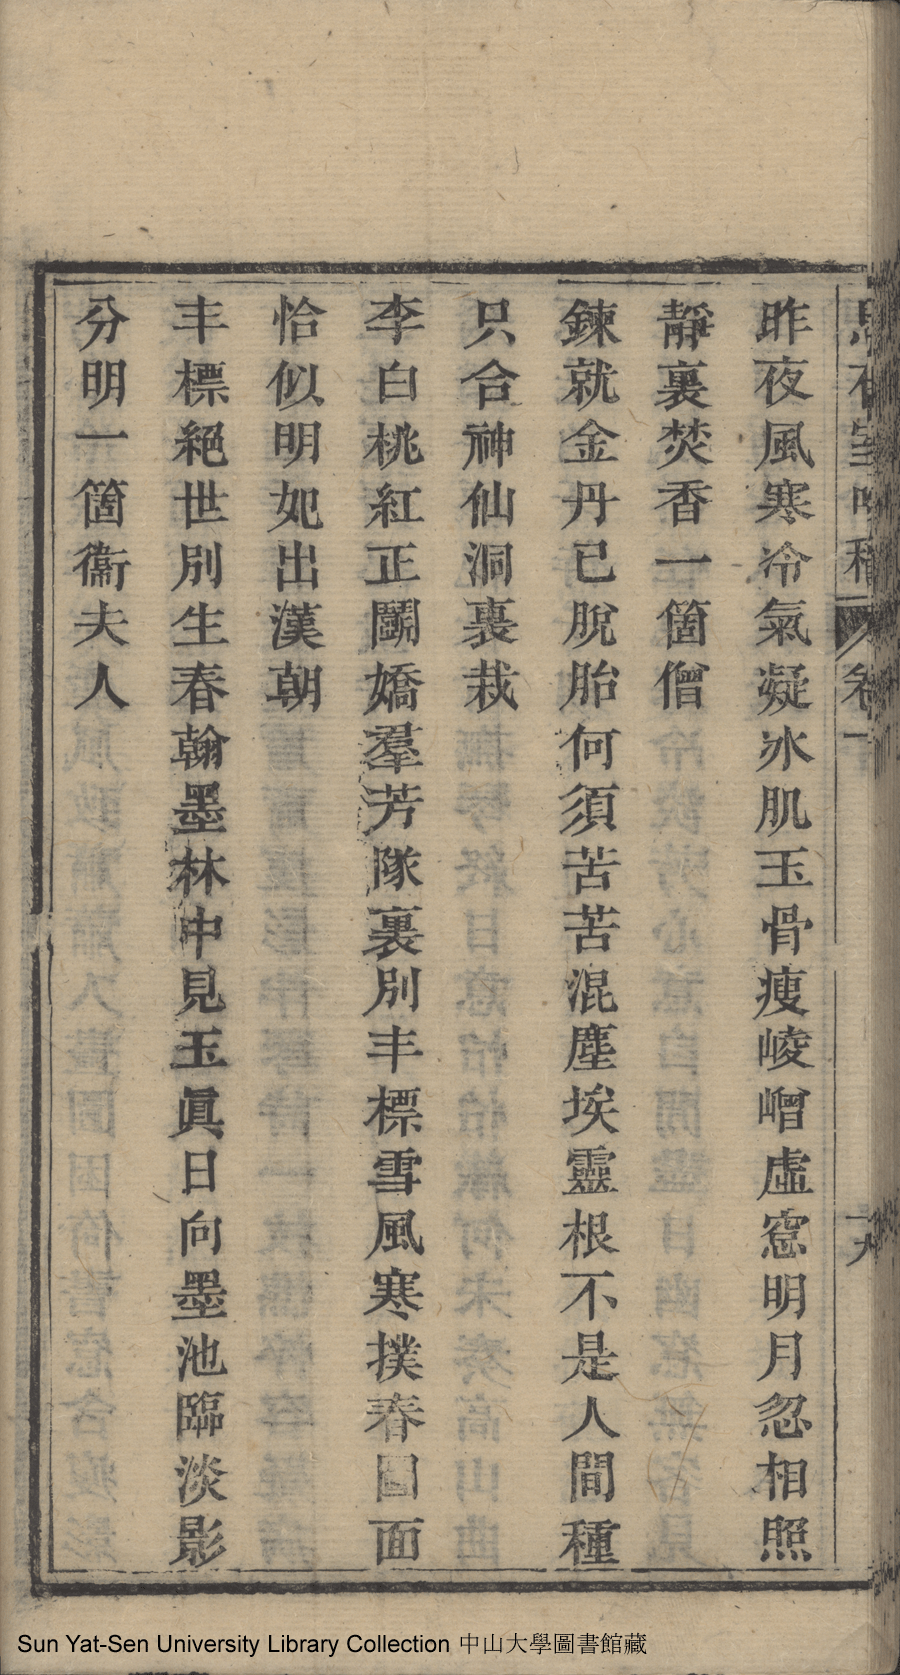 昨夜風寒冷氣凝冰肌玉骨瘦崚嶒虛窓明月忽相照
靜裏焚香一箇僧
鍊就金丹已脫胎何須苦苦混塵埃靈根不是人間種
只合神仙洞裏栽
李白桃紅正鬭嬌羣芳隊裏別丰標雪風寒撲春面
恰似明妃出漢朝
丰標絕世別生春翰墨林中見玉眞日向墨池臨淡影
分明一箇衞夫人
Sun Yat-Sen University Library Collection 中山大學圖書館藏